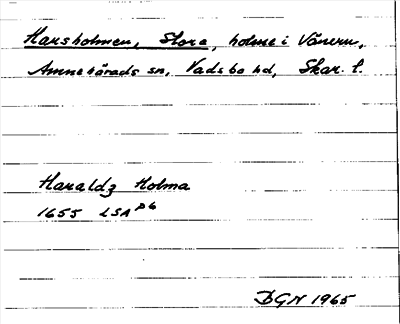 Harsholmen, Stora, holme i Vänern,
Amnehärads sn, Vadsbo hd, Skar. l.
Haraldz Holma
1655 LSA P6
DGN 1965